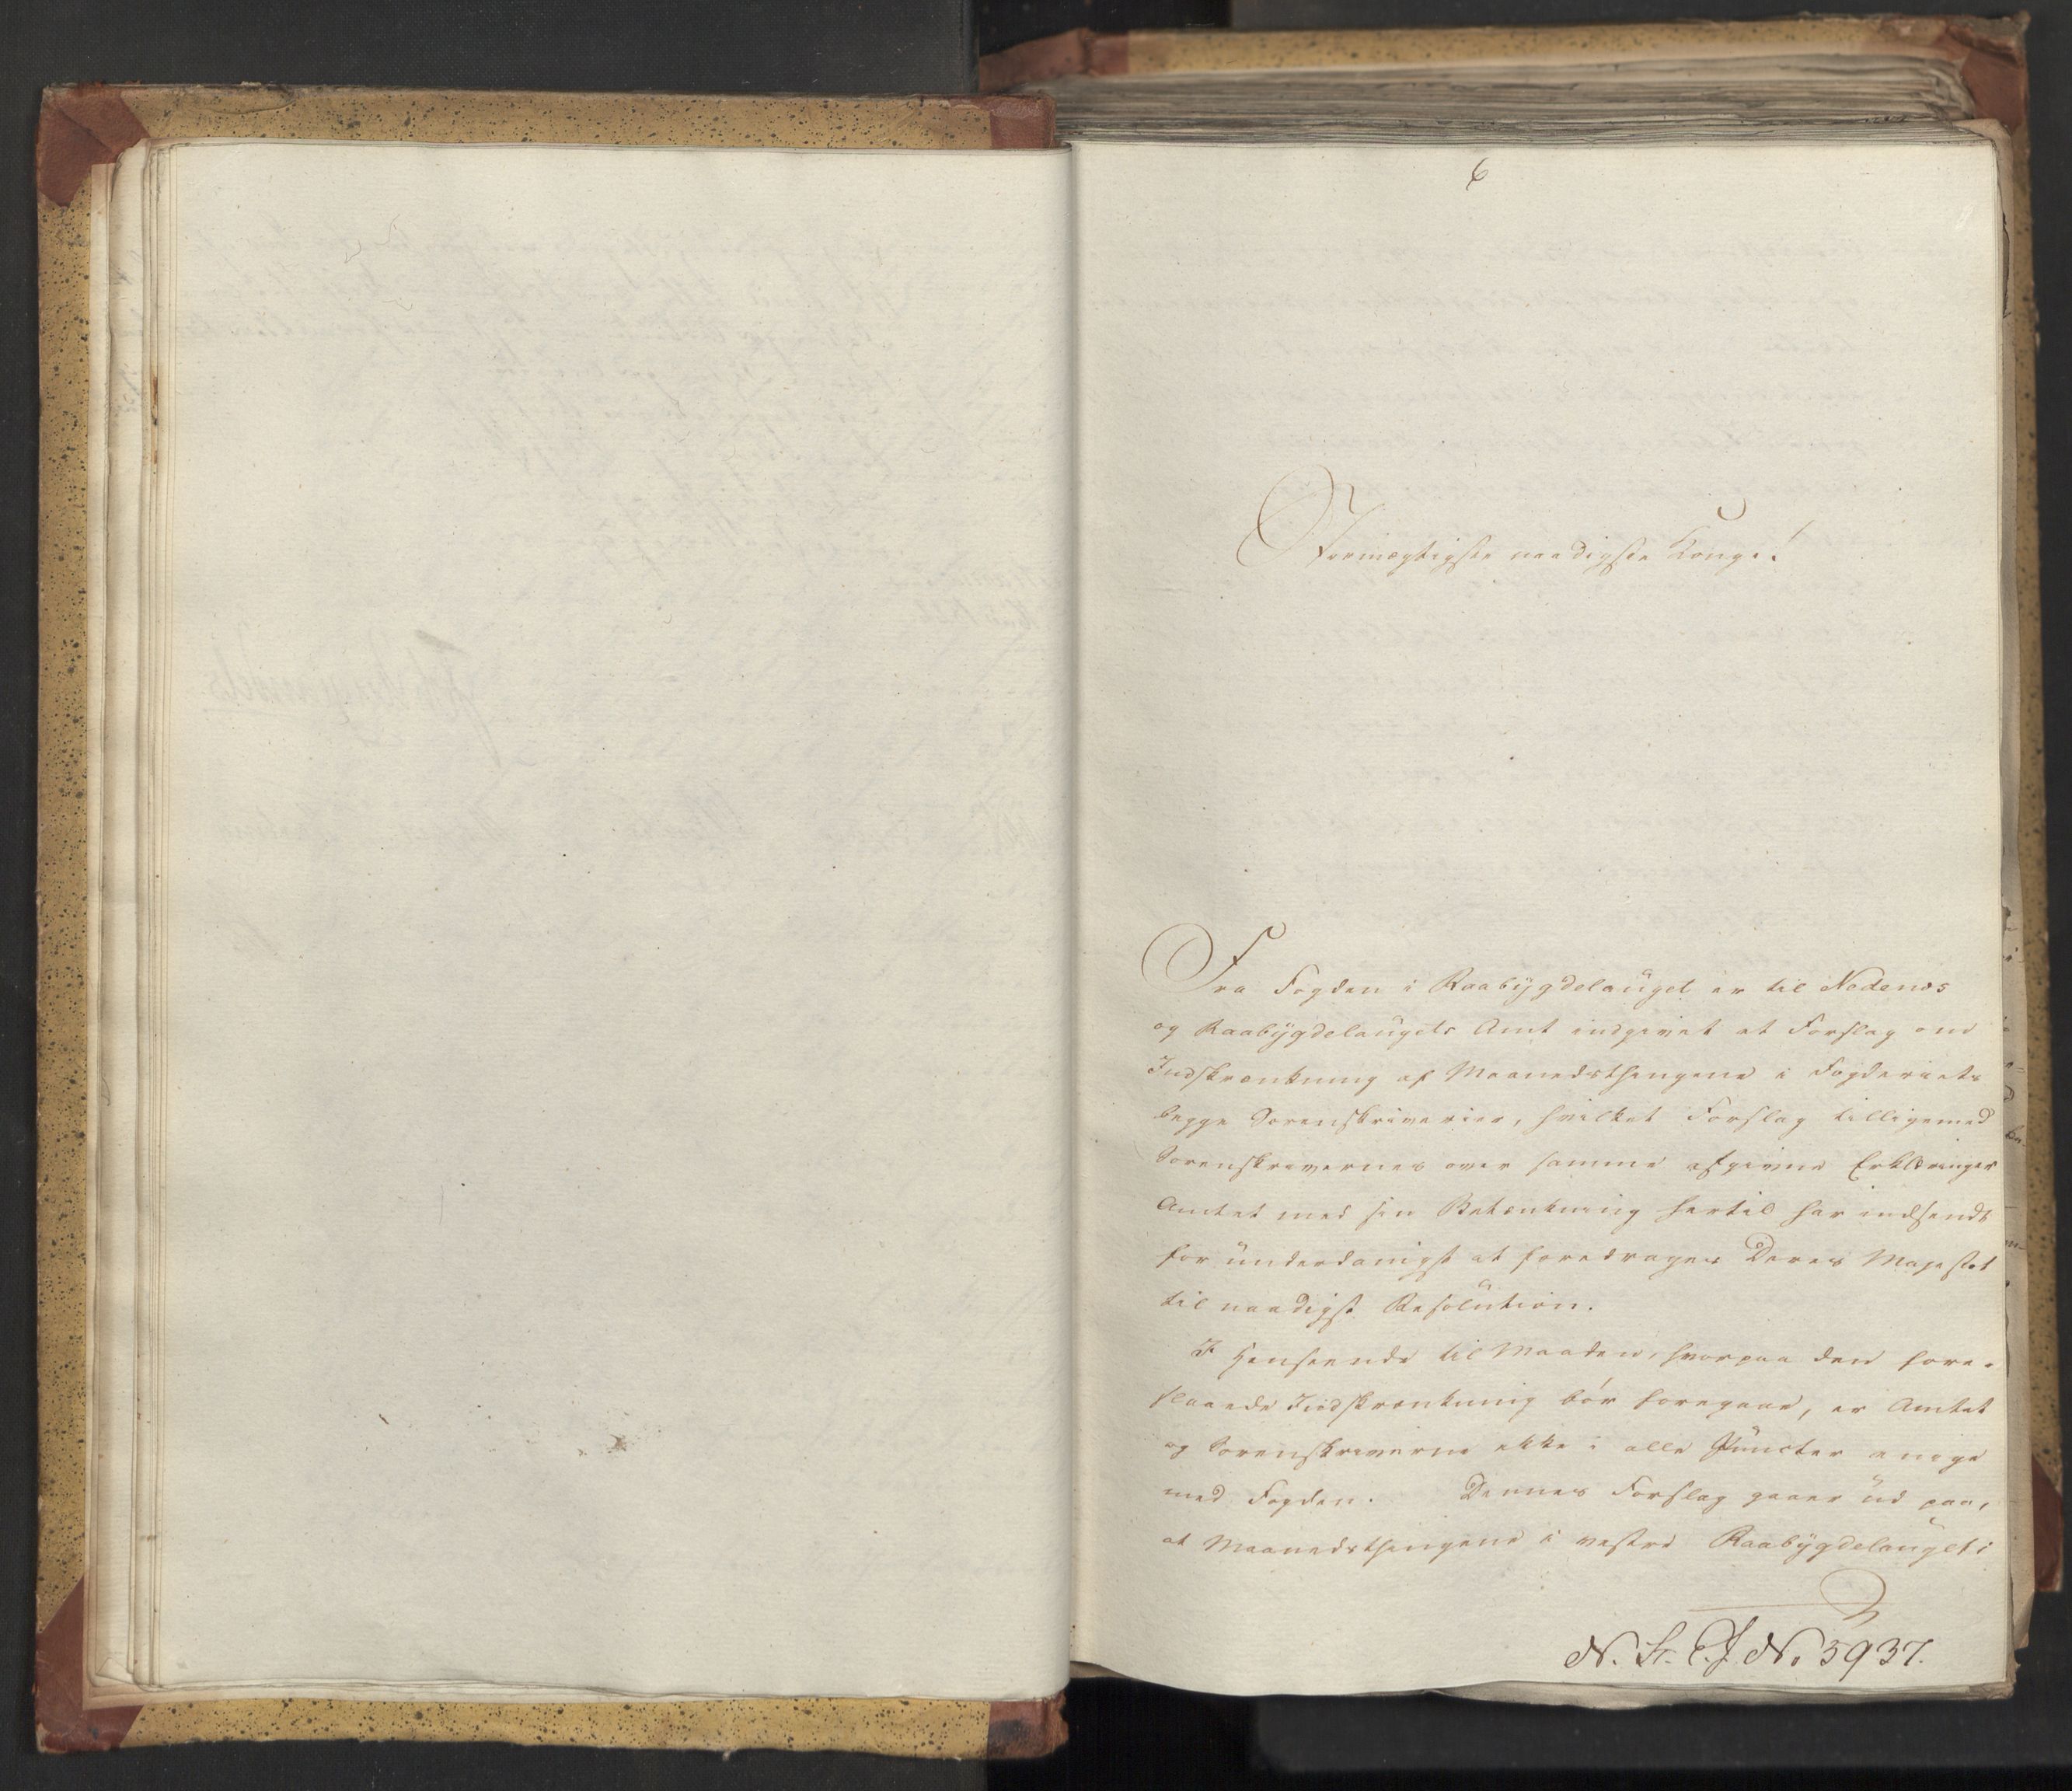 6
Stormægtigste naadigste Konge!
Fra Fogden i Raabÿgdelauget er til Nedenæs
og Raabÿgdelaugets Amt indgivet et Forslag om
Indskrænkning af Maanedsthingene i Fogderiets
begge Sorenskriverier, hvilket Forslag tilligemed
Sorenskrivernes over samme afgivne Erklæringer
Amtet med sin Betænkning hertil har indsendt
for underdanigst at foredrages Deres Majestæt
til naadigst Resolution.
I Henseende til Maaden, hvorpaa den fore-
slaaede Indskrænkning bör foregaae, er Amtet
og Sorenskriverne ikke i alle Puncter enige
med Fogden. Dennes Forslag gaaer ud paa,
at Maanedsthingene i vestre Raabÿgdelauget i
N. St. C. J. No 5937.